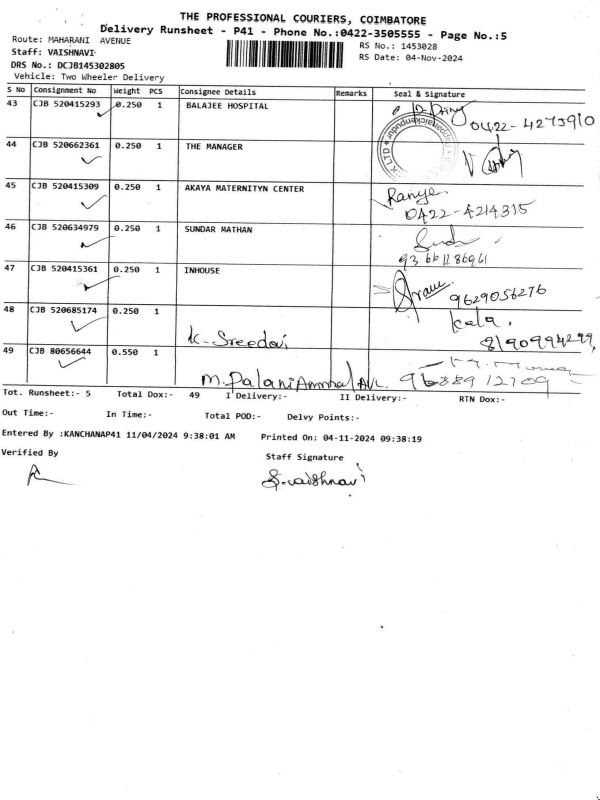 THE PROFESSIONAL COURIERS, COIMBATORE
Delivery Runsheet - P41 - Phone No.:0422-3505555 - Page No.:5
Route: MAHARANI AVENUE
RS No.: 1453028
Staff: VAISHNAVI
RS Date: 04-Nov-2024
DRS No.: DCJB145302805
Vehicle: Two Wheeler Delivery
S No Consignment No Weight PCS Consignee Details Remarks Seal & Signature
43 CJB 520415293 0.250 1 BALAJEE HOSPITAL
0422-4273910
44 CJB 520662361 0.250 1 THE MANAGER
45 CJB 520415309 0.250 1 AKAYA MATERNITYN CENTER
Ranye
0422-4214315
46 CJB 520634979 0.250 1 SUNDAR MATHAN
93661186961
47 CJB 520415361 0.250 1 INHOUSE
9629056276
48 CJB 520685174 0.250 1 K. Sreedevi Kala.
8190994299
49 CJB 80656644 0.550 1 M. Palani Ammal
Tot. Runsheet:- 5 Total Dox:- 49 I Delivery:- II Delivery:- RTN Dox:-
Out Time:- In Time:- Total POD:- Delvy Points:-
Entered By :KANCHANAP41 11/04/2024 9:38:01 AM Printed On: 04-11-2024 09:38:19
Verified By Staff Signature
S. vaishnavi